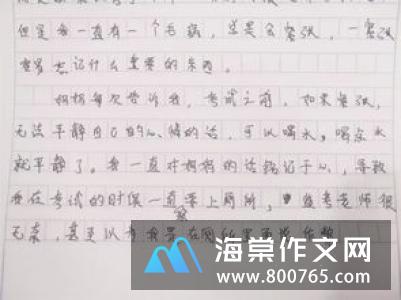 但是我一直有一个毛病，总是会紧张，一紧张
容易忘记什么重要的东西。
妈妈每次告诉我，考试之前，如果紧张，
无法平静自己的心情的话，可以喝水，喝点水
就平静了。我一直对妈妈的话铭记于心，导致
我在考试的时候一直要上厕所，监考老师很
无奈，甚至以为我是在厕所里
海棠作文网
www.800765.com